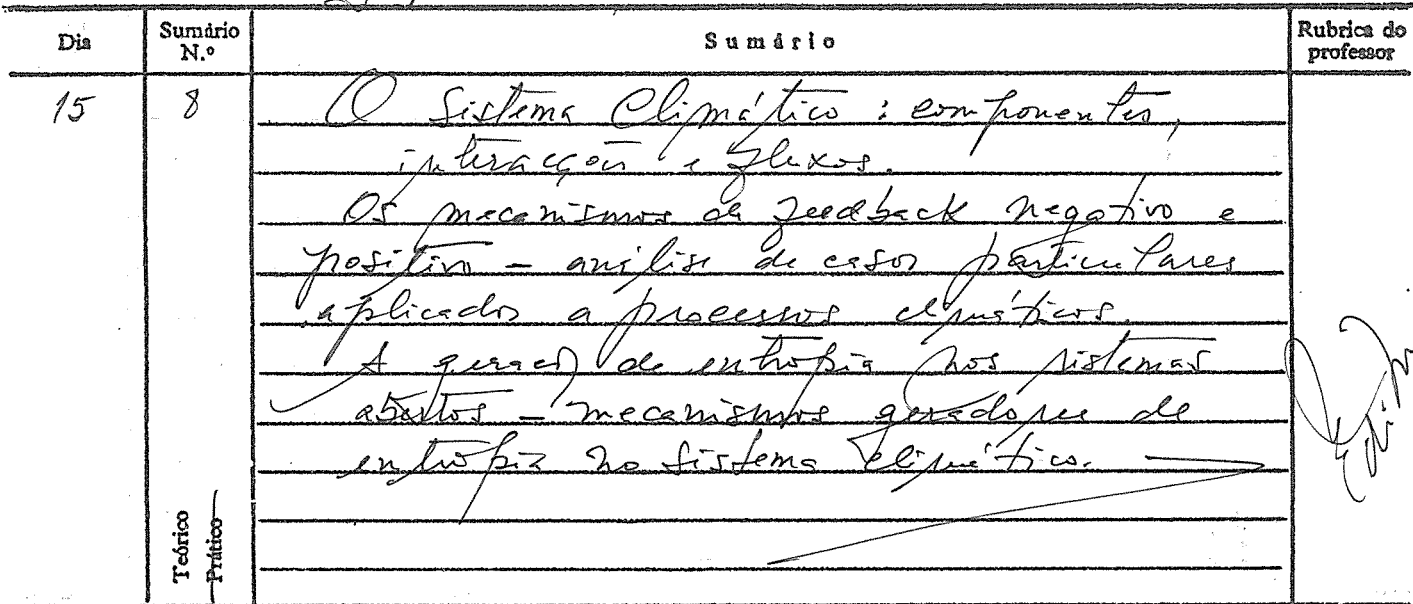 Dia
Sumário N.º
Sumário
Rubrica do professor
15
8
O Sistema Climático : componentes,
interacções e fluxos.
Os mecanismos de feedback negativo e
positivo - análise de casos particulares
aplicados a processos climáticos.
A geração de entropia nos sistemas
abertos - mecanismos geradores de
entropia no sistema climático.
Teórico
Prático